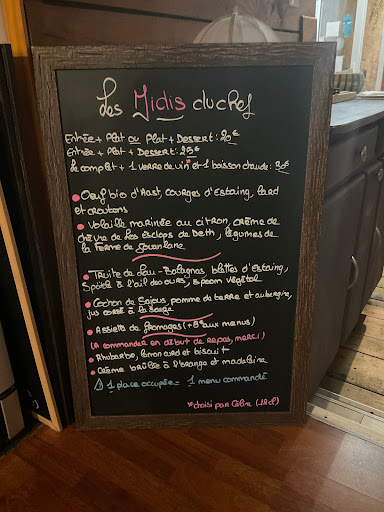 Les Midis du chef
Entrée + Plat ou Plat + Dessert: 20€
Entrée + Plat + Dessert: 25€
Le complet + 1 verre de vin* et 1 boisson chaude: 30€
Oeuf bio d'Aast, courges d'Estaing, lard
et croutons
Volaille marinée au citron, crème de
chèvre de Les Esclops de Beth, légumes de
la Ferme de
Truite de Lau-Balagnas, blettes d'Estaing,
à l'ail des ours, végétal
Cochon de Sajous, pomme de terre et aubergine,
jus corsé à la sauge
Assiette de fromages (+6€ aux menus)
(à commander en début de repas, merci)
Rhubarbe, limon curd et biscuit
Crème brûlée à l'orange et madeleine
⚠ 1 place occupée = 1 menu commandé
*choisi par Céline (12cl)